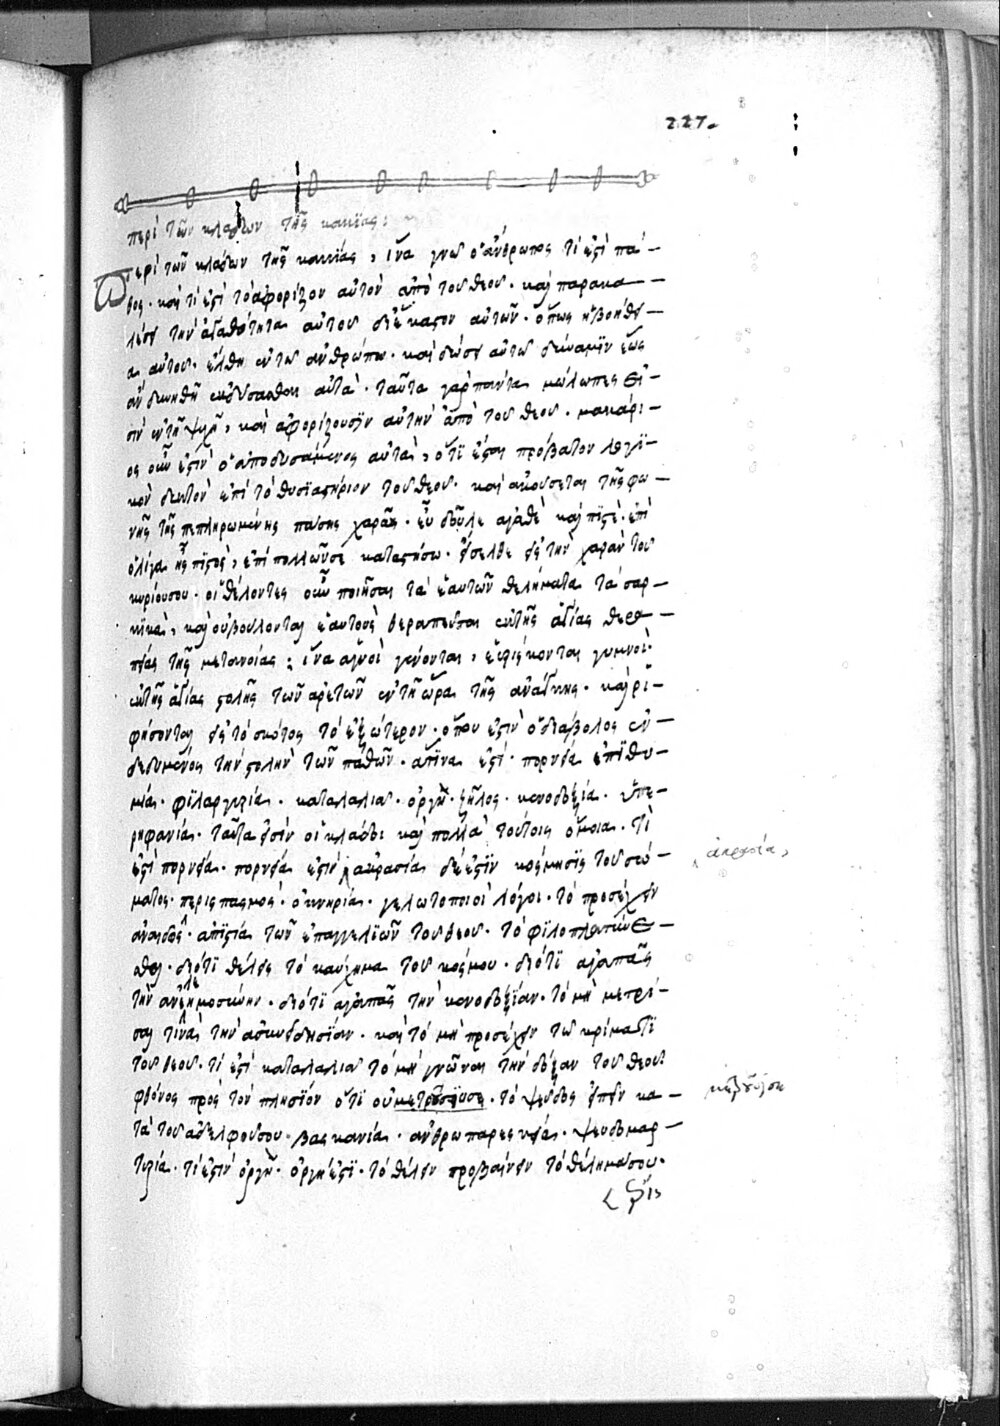 227.
περὶ τῶν κλάδων τῆς κακίας:
Περὶ τῶν κλάδων τῆς κακίας, ἵνα γνῶ ὁ ἄνθρωπος τί ἐστι πά-
θος· καὶ τί ἐστι τὸ ἀφορίζον αὐτὸν ἀπὸ τοῦ θεοῦ· καὶ παρακα-
λέσῃ τὴν ἀγαθότητα αὐτοῦ δι' ἕκαστον αὐτῶν· ὅπως ἡ βοήθει-
α αὐτοῦ ἔλθῃ ἐν τῷ ἀνθρώπῳ· καὶ δώσῃ αὐτῷ δύναμιν ἕως
ἂν δυνηθῇ ἐκδύσασθαι αὐτά· ταῦτα γὰρ πάντα μώλωπες εἰ-
σιν ἐν τῇ ψυχῇ, καὶ ἀφορίζουσιν αὐτὴν ἀπὸ τοῦ θεοῦ· μακάρι-
ος οὖν ἐστιν ὁ ἀποδυσάμενος αὐτά, ὅτι ἔσται πρόβατον λογι-
κὸν δεκτὸν ἐπὶ τὸ θυσιαστήριον τοῦ θεοῦ· καὶ ἀκούσεται τῆς φω-
νῆς τῆς πεπληρωμένης πάσης χαρᾶς· εὖ δοῦλε ἀγαθὲ καὶ πιστέ· ἐπὶ
ὀλίγα ἦς πιστός, ἐπὶ πολλῶν σε καταστήσω· εἴσελθε εἰς τὴν χαρὰν τοῦ
κυρίου σου· οἱ θέλοντες οὖν ποιῆσαι τὰ ἑαυτῶν θελήματα τὰ σαρ-
κικά, καὶ οὐ βούλονται ἑαυτοὺς θεραπεῦσαι ἐν τῆς ἁγίας θερα-
πείας τῆς μετανοίας; ἵνα ἁγνοὶ γένονται, εὑρίσκονται γυμνοὶ
ἐν τῆς ἁγίας στολῆς τῶν ἀρετῶν ἐν τῇ ὥρᾳ τῆς ἀνάγκης· καὶ ῥι-
φήσονται εἰς τὸ σκότος τὸ ἐξώτερον· ὅπου ἐστὶν ὁ διάβολος ἐν-
δεδυμένος τὴν στολὴν τῶν παθῶν· ἅτινα ἐστί· πορνεία ἐπιθυ-
μία· φιλαργυρία· καταλαλιά· ὀργή· ζῆλος· κενοδοξία· ὑπε-
ρηφανία· ταῦτα εἰσὶν οἱ κλάδοι καὶ πολλὰ τούτοις ὅμοια· τί
ἐστι πορνεία· πορνεία ἐστὶν ἀκρασία δι' ἐστὶν κόσμησις τοῦ σώ-
ἀκρασία,
ματος· περισπασμός· ὀκνηρία· γελωτοποιοὶ λόγοι· τὸ προσέχειν
ἀναιδῶς· ἀπιστία τῶν ἐπαγγελιῶν τοῦ θεοῦ· τὸ φιλοπλατύνε-
σθαι· διότι θέλεις τὸ καύχημα τοῦ κόσμου· διότι ἀγαπᾷς
τὴν ἀνελεημοσύνην· διότι ἀγαπᾷς τὴν κενοδοξίαν· τὸ μὴ μετρί-
σαι τινὰ τὴν ἀσυνειδησίαν· καὶ τὸ μὴ προσέχειν τῷ κρίματι
τοῦ θεοῦ· τί ἐστι καταλαλιά τὸ μὴ γνῶναι τὴν δόξαν τοῦ θεοῦ·
φθόνος πρὸς τὸν πλησίον ὅτι οὐ· τὸ ψεῦδος εἰπεῖν κα-
τὰ τοῦ ἀδελφοῦ σου· βασκανία· ἀνθρωπαρεσκεία· ψευδομαρ-
τυρία· τί ἐστιν ὀργή· ὀργή ἐστι· τὸ θέλειν προβαίνειν τὸ θέλημά σου·